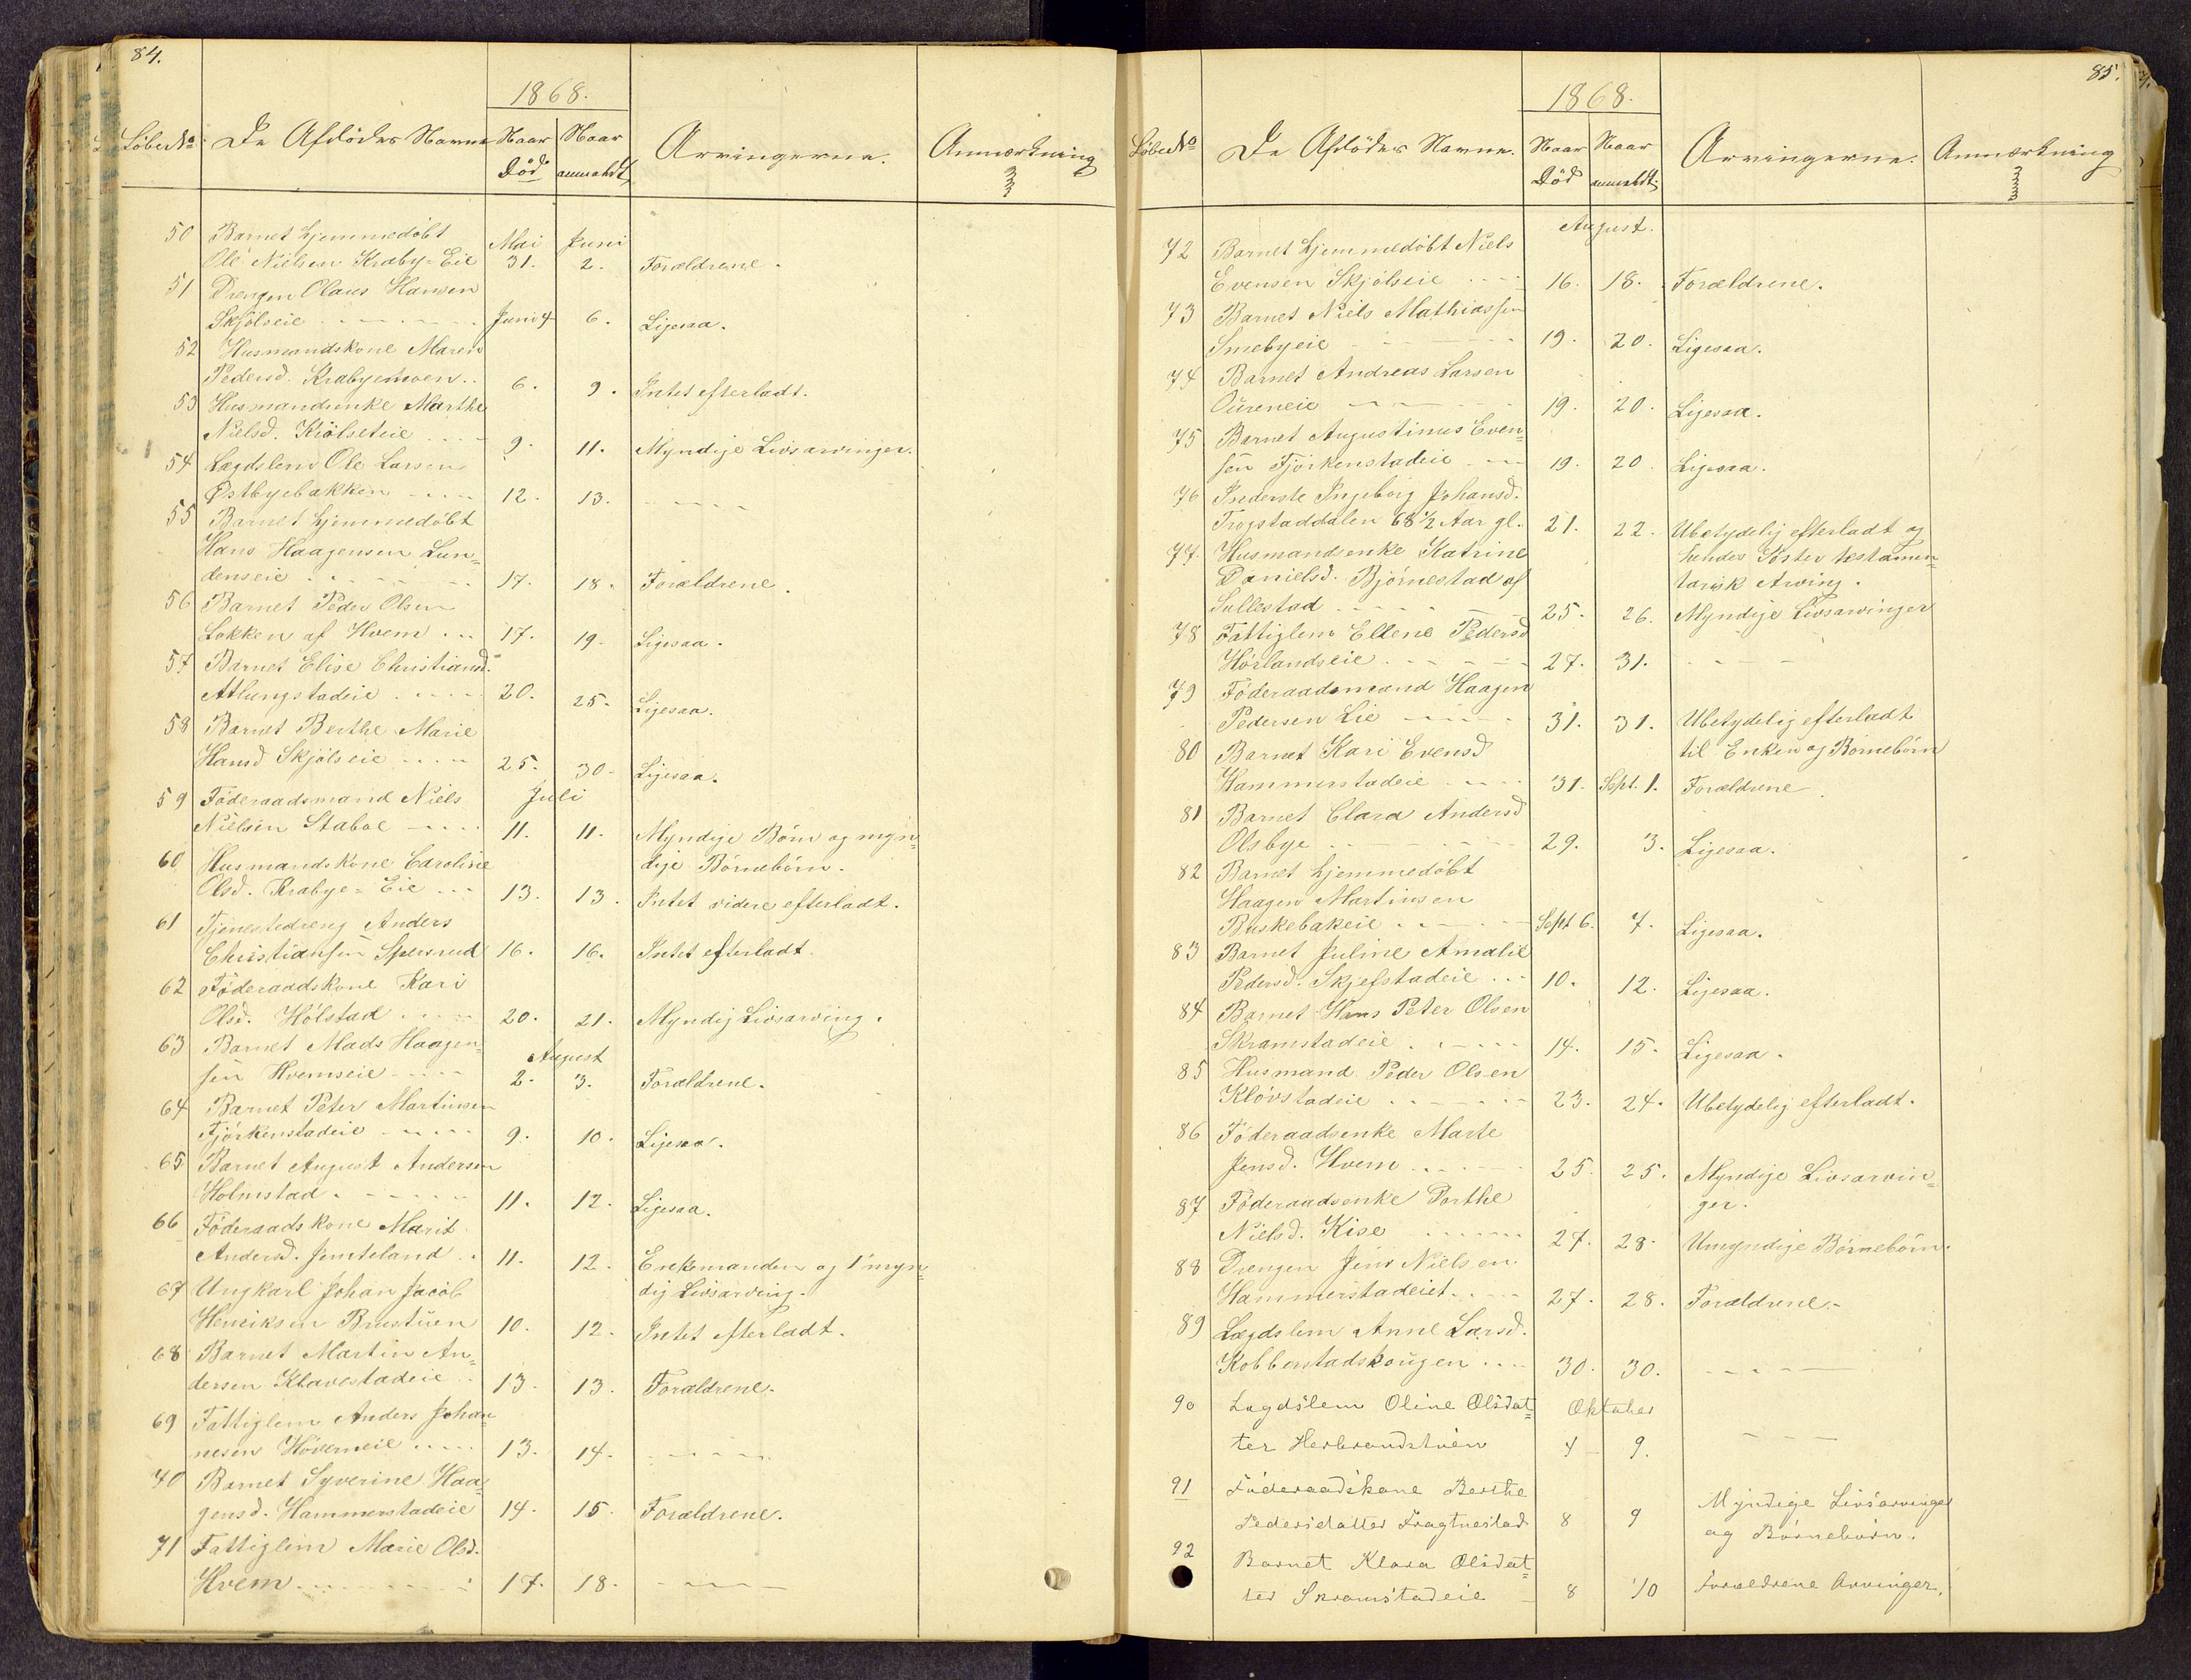 84.
1868.
Løbe No De Afdödes Navne Naar Död Naar anmeldt Arvingerne. Anmærkning
50 Barnet hjemmedöbt Mai Juni
Ole Nielsen Kraby-Eie 31. 2. Forældrene.
51 Drengen Olaus Hansen
Skjölseie Juni 4 6. Ligesaa.
52 Husmandskone Maren
Pedersd. Krabyemoen 6. 9. Intet efterladt.
53 Husmandsenke Marthe
Nielsd. Kiölseteie 9. 11. Myndige Livsarvinger.
54 Lægdslem Ole Larsen
Østbyebakken 12. 13. - - - -
55 Barnet hjemmedöbt
Hans Haagensen Lun=
denseie 17. 18. Forældrene.
56 Barnet Peder Olsen
Lokken af Hvem 17. 19. Ligesaa.
57 Barnet Elise Christiansd.
Atlungstadeie 20. 25. Ligesaa.
58 Barnet Berthe Marie
Hansd Skjölseie 25. 30. Ligesaa.
59 Föderaadsmand Niels Juli
Nielsen Staboe 11. 11. Myndige Börn og myn=
60 Husmandskone Caroline dige Börnebörn.
Olsd. Krabye=Eie 13. 13. Intet videre efterladt.
61 Tjenestedreng Anders
Christiansen 16. 16. Intet efterladt.
62 Föderaadskone Kari
Olsd. Hölstad 20. 21. Myndig Livsarving.
63 Barnet Mads Haagen= August
sen Hvemseie 2. 3. Forældrene.
64 Barnet Peter Martinsen
Fjörkenstadeie 9. 10. Ligesaa.
65 Barnet August Andersen
Holmstad 11. 12. Ligesaa.
66 Föderaadskone Marit
Andersd. Jemteland 11. 12. Enkemanden og 1 myn=
67 Ungkarl Johan Jacob dig Livsarving.
Henriksen Brustuen 10. 12. Intet efterladt.
68 Barnet Martin An=
dersen Klavestadeie 13. 13. Forældrene.
69 Fattiglem Anders Johan=
nesen Höverneie 13. 14. - - - -
70 Barnet Syverine Haa=
gensd. Hammerstadeie 14. 15. Forældrene.
71 Fattiglem Marie Olsd.
Hvem 17. 18. - - - -
85.
1868.
Løbe No De Afdödes Navne. Naar Död Naar anmeldt. Arvingerne. Anmærkning
August.
72 Barnet hjemmedöbt Niels
Evensen Skjölseie 16. 18. Forældrene.
73 Barnet Niels Mathiassen
Smebyeie 19. 20. Ligesaa.
74 Barnet Andreas Larsen
Oureneie 19. 20. Ligesaa.
75 Barnet Augustinus Even=
sen Fjörkenstadeie 19. 20. Ligesaa.
76 Inderste Ingeborg Johansd.
Trogstaddalen 68 1/2 Aar gl. 21. 22. Ubetydelig efterladt og
77 Husmandsenke Katrine hendes Söster testamen=
Danielsd. Björnestad af tarisk Arving.
Sullestad 25. 26. Myndige Livsarvinger
78 Fattiglem Ellene Pedersd
Hörlandseie 27. 31. - - - -
79 Föderaadsmand Haagen
Pedersen Lie 31. 31. Ubetydelig efterladt
80 Barnet Kari Evensd til Enken og Börnebörn
Hammerstadeie 31. Sept. 1. Forældrene.
81 Barnet Clara Andersd
Olsbye 29. 3. Ligesaa.
82 Barnet hjemmedöbt
Haagen Martinsen
Buskebakeie Sept 6. 7. Ligesaa.
83 Barnet Juline Amalie
Pedersd. Skjefstadeie 10. 12. Ligesaa.
84 Barnet Hans Peter Olsen
Skramstadeie 14. 15. Ligesaa.
85 Husmand Peder Olsen
Klövstadeie 23. 24. Ubetydelig efterladt.
86 Föderaadsenke Marte
Jensd. Hvem 25. 25. Myndige Livsarvin=
87 Föderaadsenke Porthe ger.
Nielsd. Kise 27. 28. Umyndige Börnebörn.
88 Drengen Jens Nielsen
Hammerstadeiet 27. 28. Forældrene.
89 Lægdslem Anne Larsd.
Kobberstadskougen 30. 30. - - - -
90 Lægdslem Oline Olsdat= Oktober
ter Herbrandstuen 4 9. - - -
91 Föderaadskone Berthe Myndige Livsarvinger
Pedersdatter Frogtnestad 8 9 og Börnebörn.
92 Barnet Klara Olsdat=
ter Skramstadeie 8 10 Forældrene Arvinger.